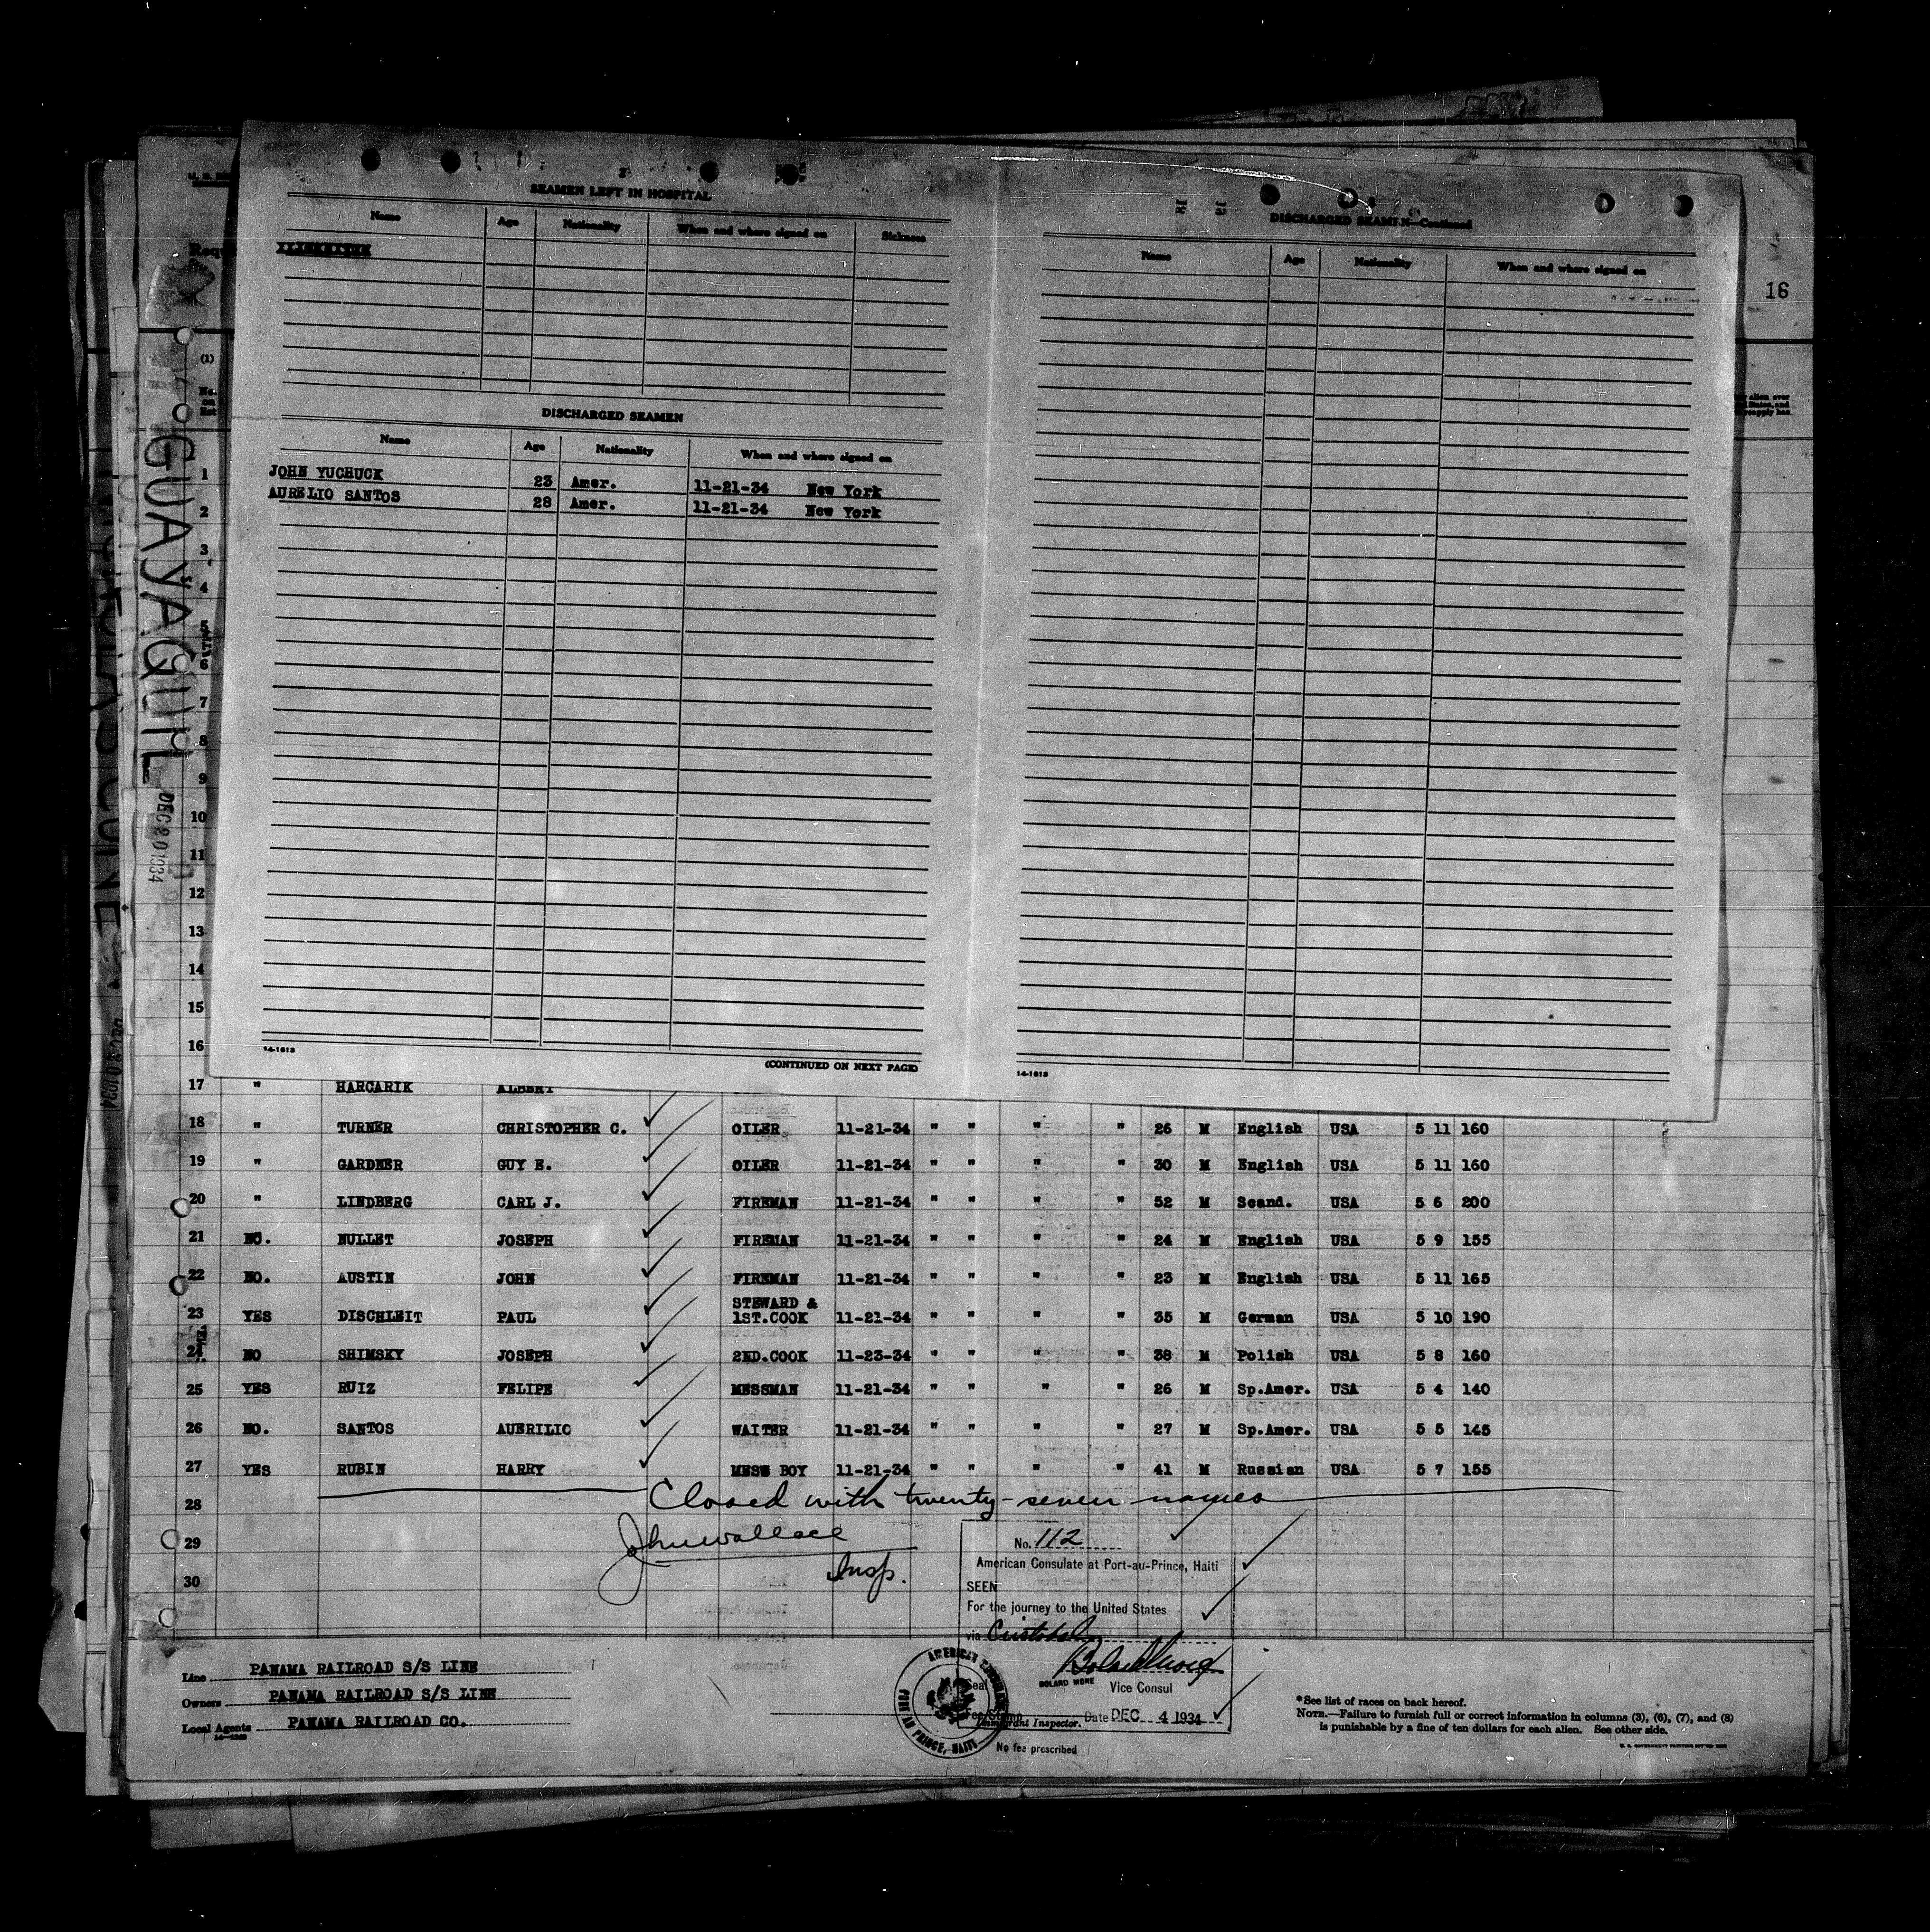 SEAMEN LEFT IN HOSPITAL
Name Age Nationality When and where signed on Sickness
DISCHARGED SEAMEN
Name Age Nationality When and where signed on
JOHN YUCHUCK 23 Amer. 11-21-34 New York
AURELIO SANTOS 28 Amer. 11-21-34 New York
14-1613
(CONTINUED ON NEXT PAGE)
DISCHARGED SEAMEN—Continued
Name Age Nationality When and where signed on
14-1613
16
(1)
No. on list
GUAYAQUIL
DEC 20 1934
1
2
3
4
5
6
7
8
9
10
11
12
13
14
15
16
17 " HARCARIK ALBERT
18 " TURNER CHRISTOPHER C. OILER 11-21-34 " " " " 26 M English USA 5 11 160
19 " GARDNER GUY E. OILER 11-21-34 " " " " 30 M English USA 5 11 160
20 " LINDBERG CARL J. FIREMAN 11-21-34 " " " " 52 M Scand. USA 5 6 200
21 NO. NULLET JOSEPH FIREMAN 11-21-34 " " " " 24 M English USA 5 9 155
22 NO. AUSTIN JOHN FIREMAN 11-21-34 " " " " 23 M English USA 5 11 165
23 YES DISCHLEIT PAUL STEWARD & 1ST.COOK 11-21-34 " " " " 35 M German USA 5 10 190
24 NO SHIMSKY JOSEPH 2ND.COOK 11-23-34 " " " " 38 M Polish USA 5 8 160
25 YES RUIZ FELIPE MESSMAN 11-21-34 " " " " 26 M Sp.Amer. USA 5 4 140
26 NO. SANTOS AUERILIO WAITER 11-21-34 " " " " 27 M Sp.Amer. USA 5 5 145
27 YES RUBIN HARRY MESS BOY 11-21-34 " " " " 41 M Russian USA 5 7 155
28 Closed with twenty-seven names
29 John Wallace
30 Insp.
No. 112
American Consulate at Port-au-Prince, Haiti
SEEN
For the journey to the United States
via Cristobal
Vice Consul
Date DEC 4 1934
Immigrant Inspector.
No fee prescribed
AMERICAN CONSULATE
PORT AU PRINCE, HAITI
Line PANAMA RAILROAD S/S LINE
Owners PANAMA RAILROAD S/S LINE
Local Agents PANAMA RAILROAD CO.
*See list of races on back hereof.
NOTE.—Failure to furnish full or correct information in columns (3), (6), (7), and (8)
is punishable by a fine of ten dollars for each alien. See other side.